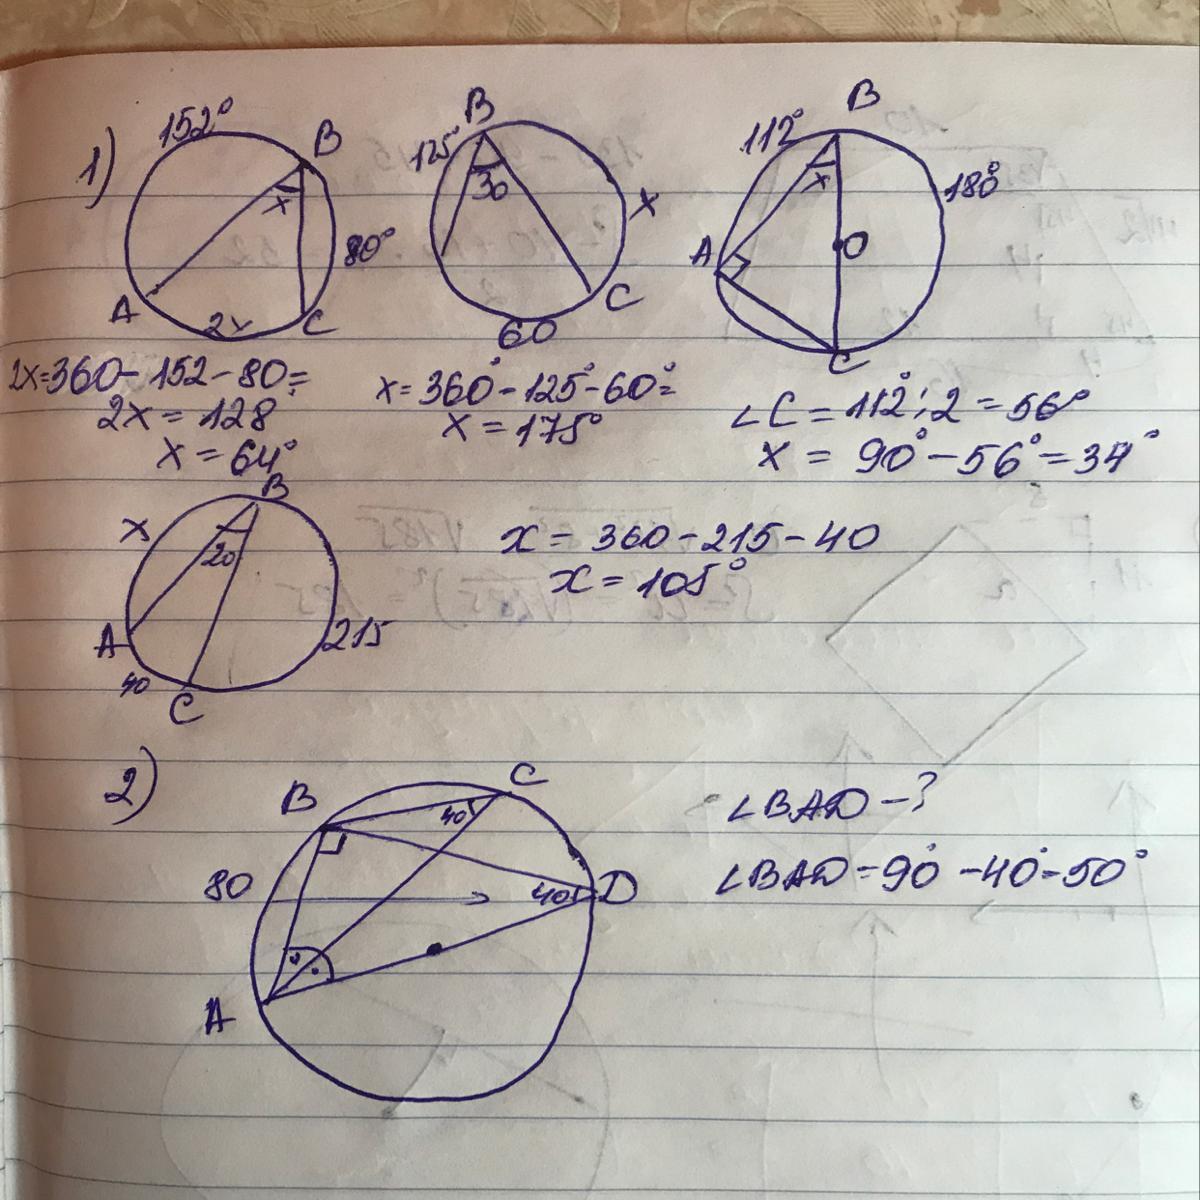 1)
152°
B
x
80°
A
2x
C
2x=360-152-80=
2x = 128
x = 64°
B
125°
30
x
C
60
x= 360°-125°-60°=
x = 175°
B
112°
x
180°
A
O
C
∠C = 112°:2 = 56°
x = 90°-56°=34°
B
x
20
A
40
215
C
x = 360-215-40
x = 105°
2)
B
C
40
80
40
D
A
∠BAD -?
∠BAD=90°-40°=50°